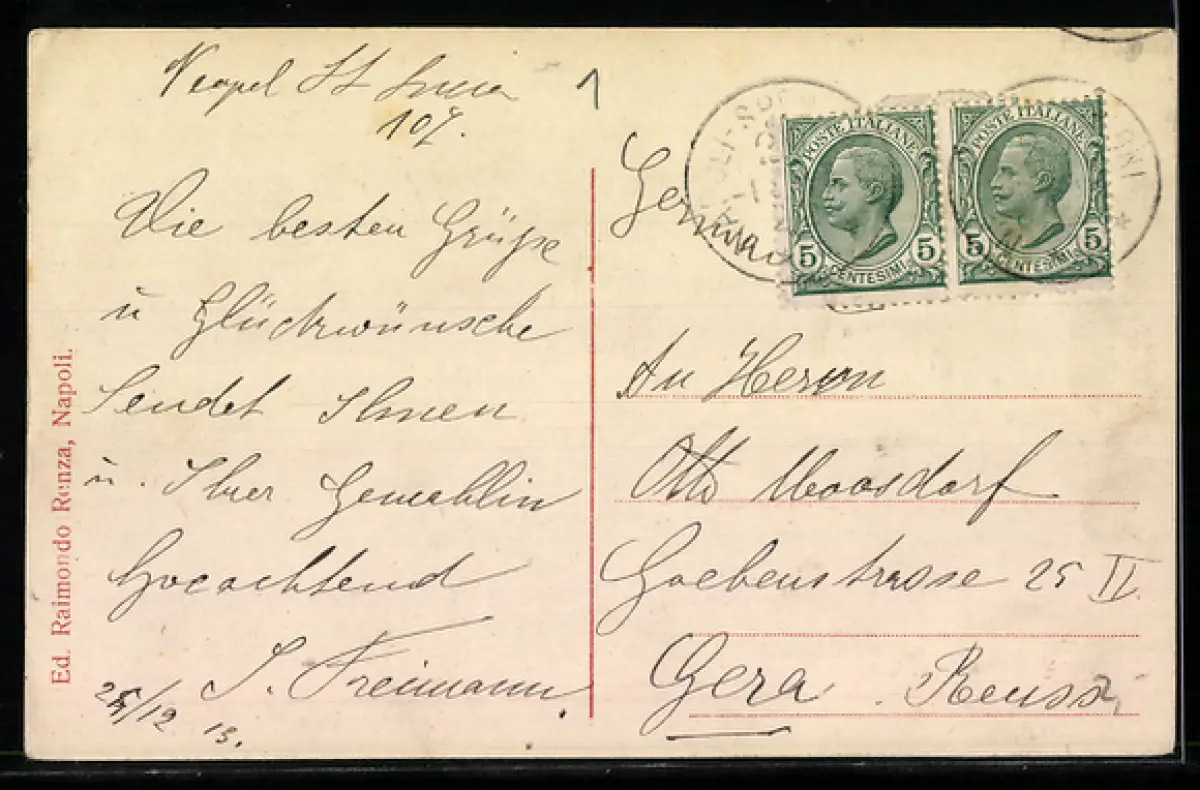 Neapel St Lucia
107.
Die besten Grüße
u Glückwünsche
Sendet Ihnen
u. Ihrer Gemahlin
Hocachtend
J. Freimann.
12 13.
Ed. Raimondo Renza, Napoli.
POSTE ITALIANE
5 CENTESIMI 5
POSTE ITALIANE
5 CENTESIMI 5
An Herrn
Otto Moosdorf
Goebenstrasse 25 II
Gera Reuss